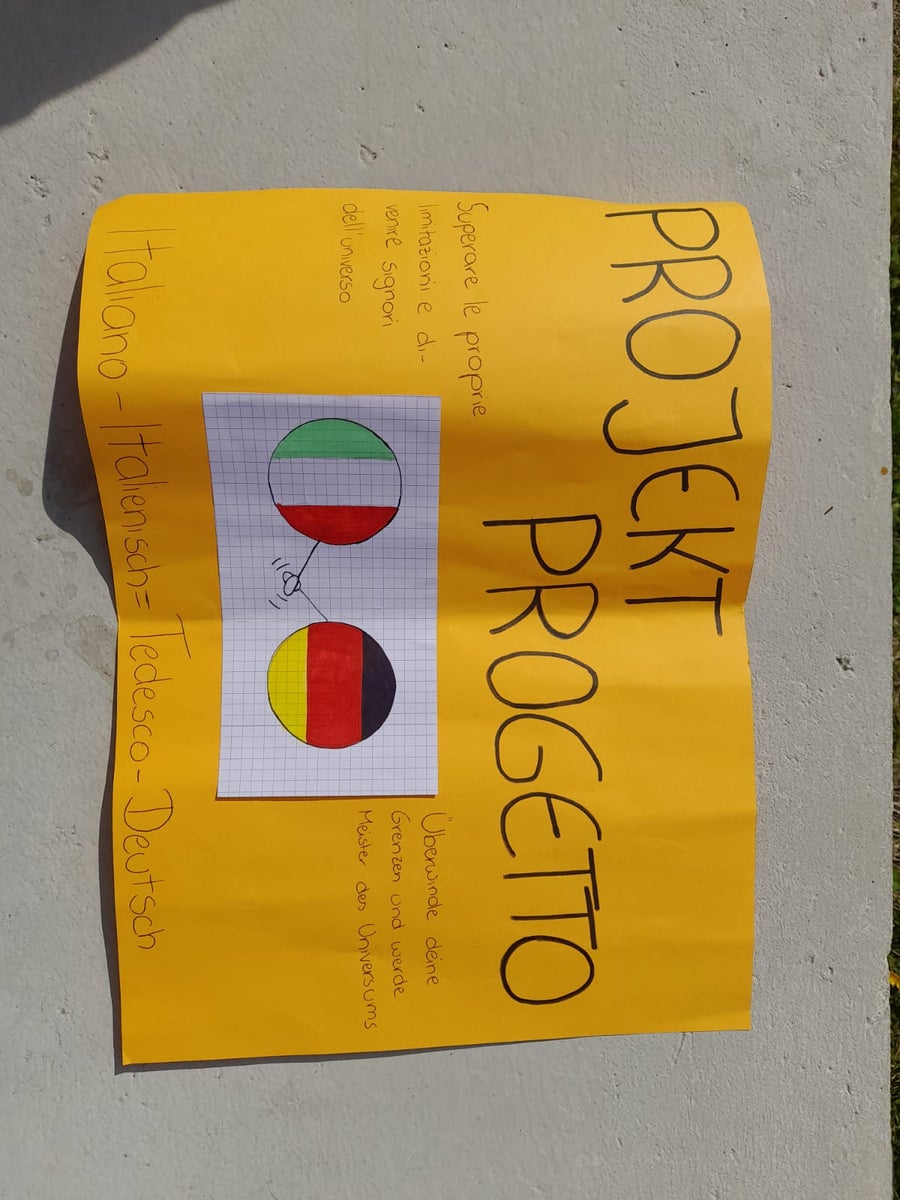 PROJEKT
PROGETTO
Superare le proprie
limitazioni e di-
venire signori
dell'universo
Überwinde deine
Grenzen und werde
Meister des Universums
Italiano - Italienisch = Tedesco - Deutsch